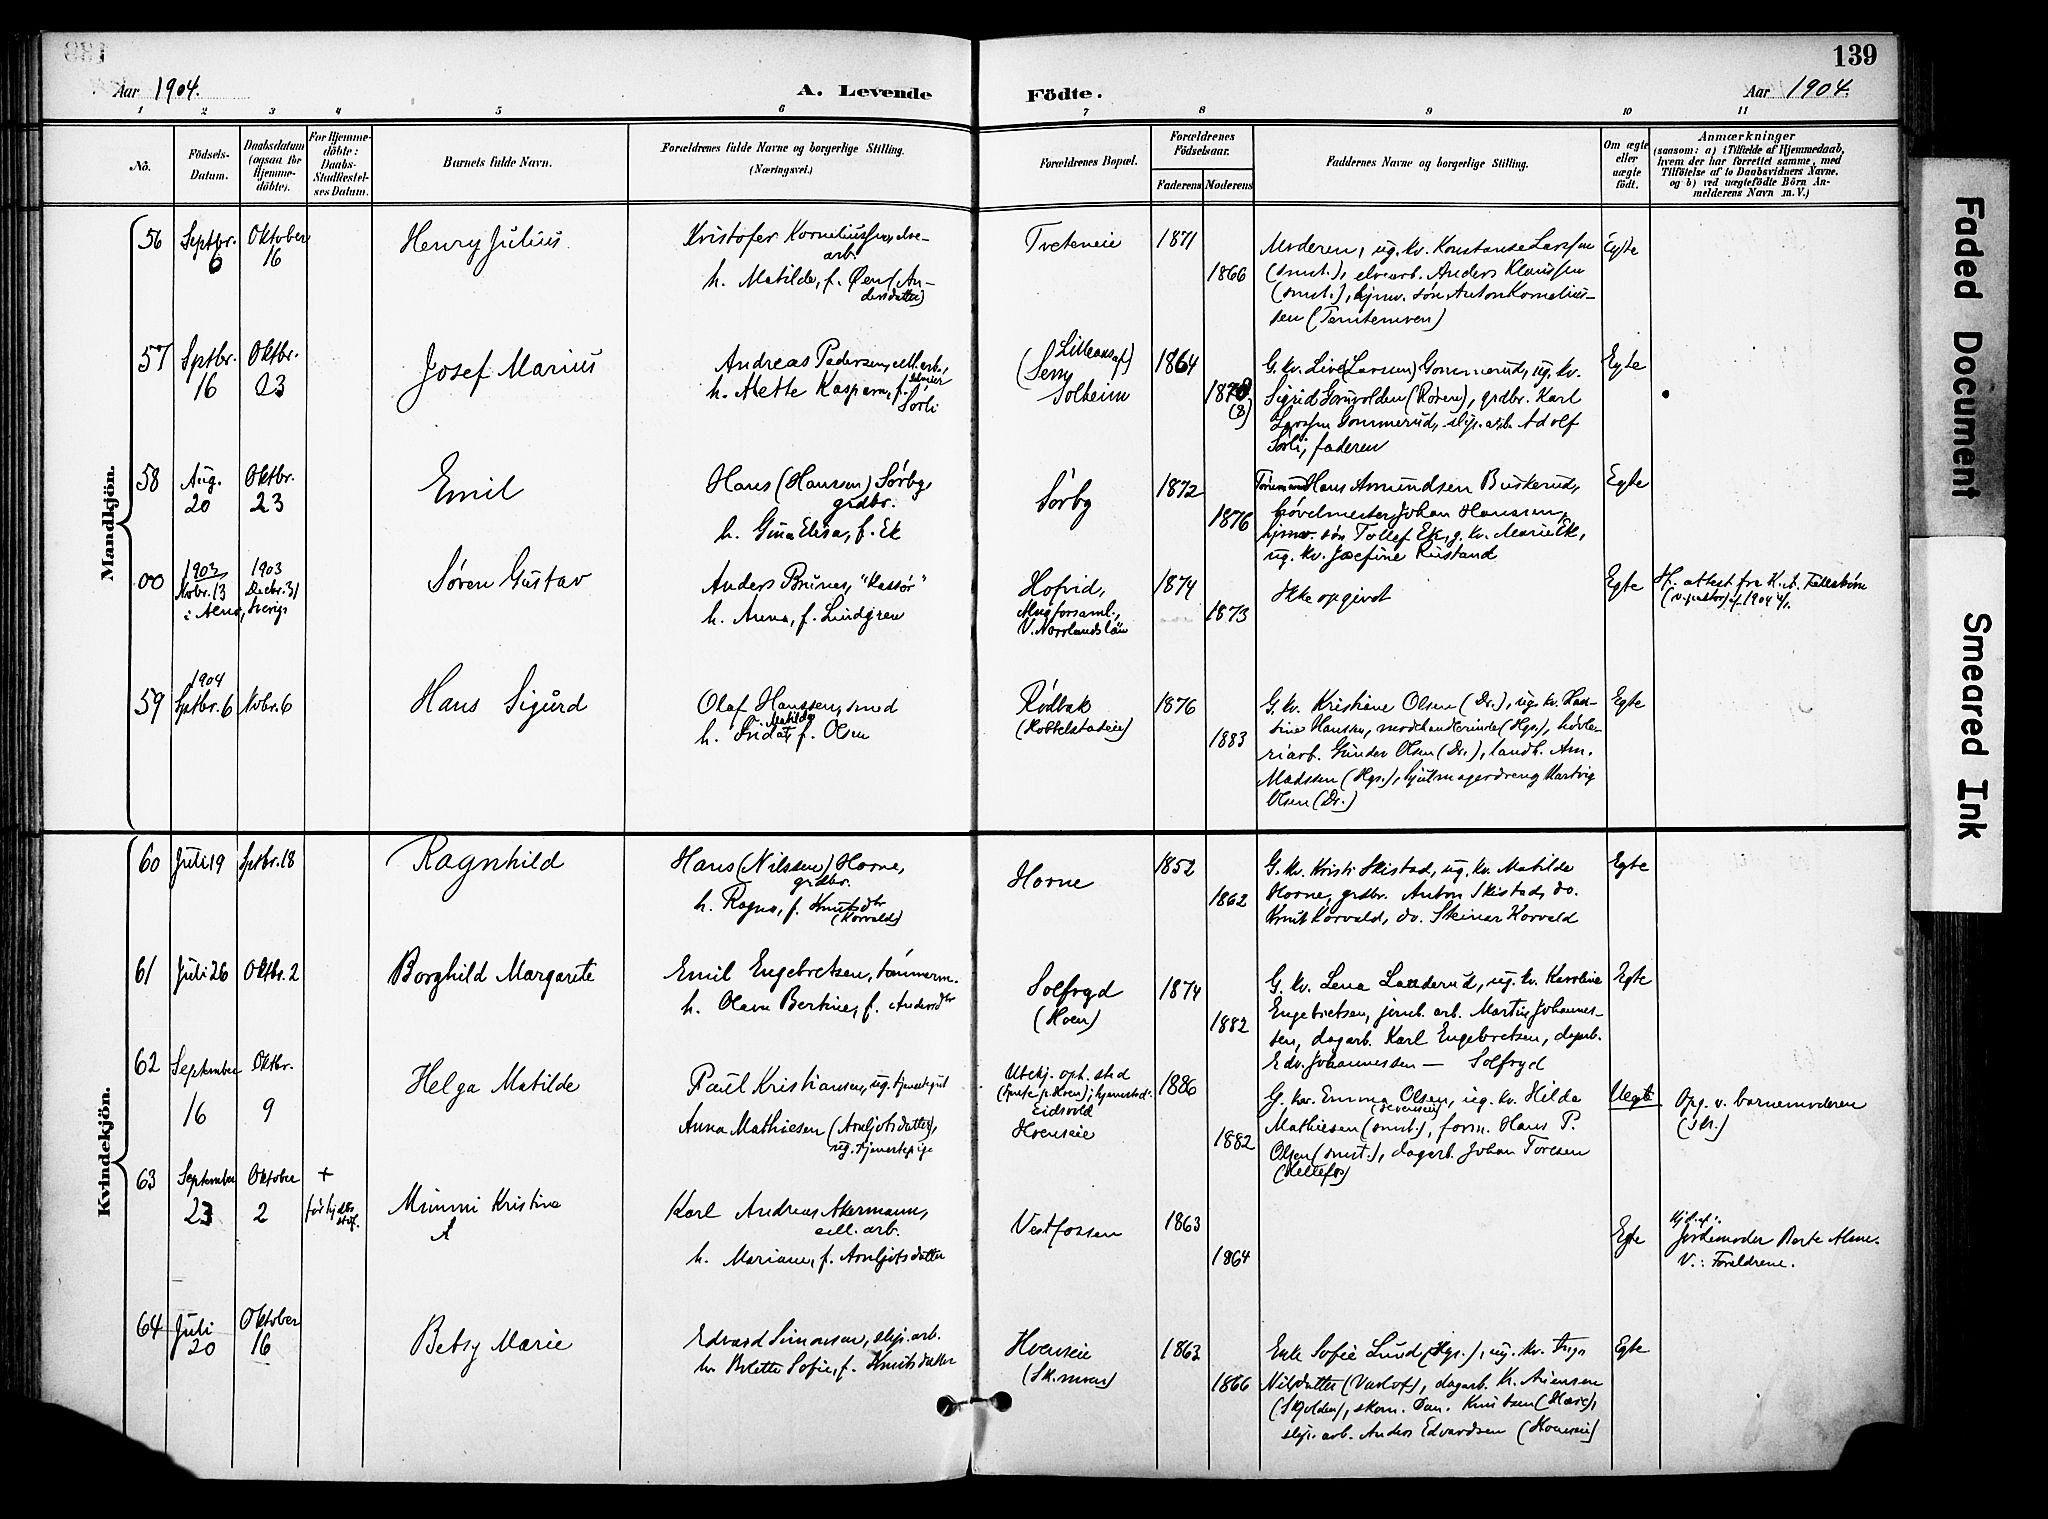 139
Aar 1904.
A. Levende Födte.
Aar 1904.
1 2 3 4 5 6 7 8 9 10 11
No.
Födsels-Datum.
Daabsdatum (ogsaa for Hjemme-döbte).
For Hjemme-döbte: Daabs-Stadfæstel-ses Datum.
Barnets fulde Navn.
Forældrenes fulde Navne og borgerlige Stilling. (Næringsvei.)
Forældrenes Bopæl.
Forældrenes Födselsaar.
Faderens Moderens
Faddernes Navne og borgerlige Stilling.
Om ægte eller uægte födt.
Anmærkninger
(saasom: a) i Tilfælde af Hjemmedaab,
hvem der har forrettet samme, med
Tilföielse af to Daabsvidners Navne,
og b) ved uægtefödte Börn An-
melderens Navn m. V.)
Mandkjön.
56 Septbr. 6 Oktober 16
Henry Julius
Kristofer Korneliussen, elve-
arb.
h. Matilde, f. Øen (An-
dersdatter)
Tveteneie
1871
1866
Moderen, ug. kv. Konstanse Larssen
(smst.), elvearb. Anders Klaussen
(smst.), hjmv. søn Anton Kornelius-
sen
Egte
57 Sptbr. 16 Oktbr. 23
Josef Marius
Andreas Pedersen, cell. arb.,
h. Mette Kaspara, f.
Sørli
Solheim
1864
1878
(8)
G. kv. Live (Larssen) Gommerud, ug. kv.
Sigrid (Røren), grdbr. Karl
Larssen Gommerud, slip. arb. Adolf
Sørli, faderen
Egte
58 Aug. 20 Oktbr. 23
Emil
Hans (Hanssen) Sørby,
grdbr.
h. Gina Elisa, f. Ek
Sørby
1872
1876
Hans Amundsen Buskerud,
høvelmester Johan Hanssen,
hjmv. søn Tollef Ek, g. kv. Marie Ek,
ug. kv. Josefine Rustand
Egte
00 1903 Nvbr. 13 1903 Decbr. 31
Sverige
Søren Gustav
Anders Brunes, "Kassør"
h. Anna, f. Lindgren
Hofvid,
V. Norrlandslän
1874
1873
Ikke opgivet
Egte
59 1904 Sptbr. 6 Nvbr. 6
Hans Sigurd
Olaf Hanssen, smed
Matilde
h. Frida, f. Olsen
Rødbak
1876
1883
G. kv. Kristiane Olsen (Dr.), ug. kv. Han-
sine Hanssen, modehandlerinde (Hgs.), høvle-
riarb. Gunder Olsen (Dr.), landh. Am.
Madssen (Hgs.), hjulmagerdreng Hartvig
Olsen (Dr.)
Egte
Kvindekjön.
60 Juli 19 Sptbr. 18
Ragnhild
Hans (Nilssen) Horne,
grdbr.
h. Ragna, f. Knutsdtr
(Korvald)
Horne
1852
1862
G. kv. Kristi Skistad, ug. kv. Matilde
Horne, grdbr. Anton Skistad, do.
Knut Korvald, do. Steinar Korvald
Egte
61 Juli 26 Oktbr. 2
Borghild Margarete
Emil Engebretsen, tømmerm.
h. Olava Bertine, f. Andersdtr
Solfryd
(Hoen)
1874
1882
G. kv. Lena Landerud, ug. kv. Karoline
Engebretsen, jernb. arb. Martin Johannes-
sen, dagarb. Karl Engebretsen, dagarb.
Edv. Johannessen — Solfryd
Egte
62 September 16 Oktbr. 9
Helga Matilde
Paul Kristiansen, ug. tjenestegut
Anna Mathiesen (Arnljotsdatter),
ug. tjenestepige
Ubekj. oph. sted
Eidsvold
Hoenseie
1886
1882
G. kv. Emma Olsen, ug. kv. Hilda
Mathiesen (smst.), form. Hans P.
Olsen (smst.), dagarb. Johan Toresen
(Hellefos)
Uegte
Opg. v. barnemoderen
63 September 23 Oktober 2 +
Mimmi Kristine
Karl Andreas Akermann,
cell. arb.
h. Mariane, f. Arnljotsdatter
Vestfossen
1863
1864
Egte
Hjd. af:
Jordemoder Berte Alme.
V.: Forældrene.
64 Juli 20 Oktober 16
Betsy Marie
Edvard Simonsen, slip. arb.
h. Bolette Sofie, f. Knutsdatter
Hoenseie
1863
1866
Enke Sofie Lund (Hgs.), ug. kv. Inga
Nilsdatter, dagarb. K. Ariensen
(Skjolden), skom. Dan. Knutsen,
slip. arb. Anders Edvardsen (Hoenseie)
Egte
Faded Document
Smeared Ink